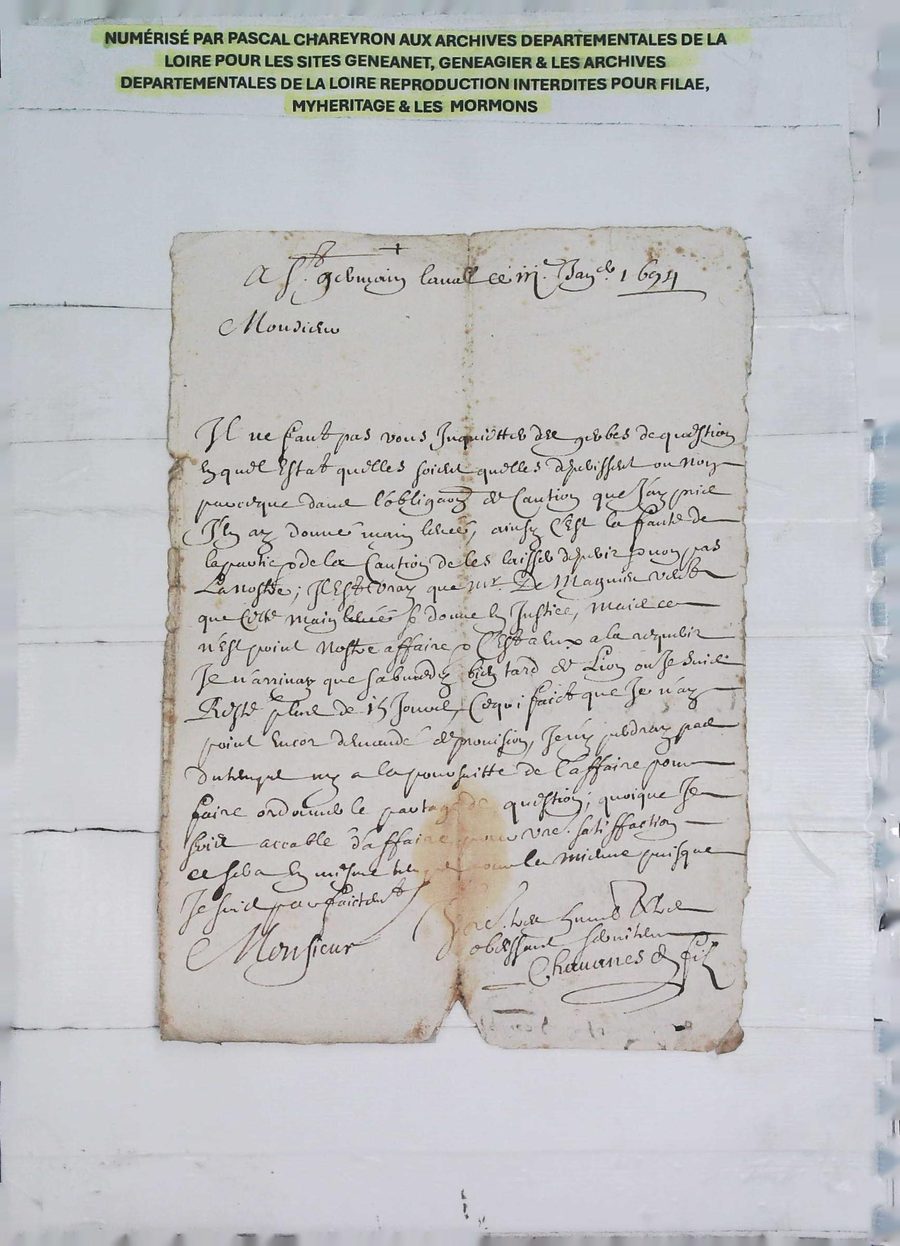 NUMÉRISÉ PAR PASCAL CHAREYRON AUX ARCHIVES DEPARTEMENTALES DE LA
LOIRE POUR LES SITES GENEANET, GENEAGIER & LES ARCHIVES
DEPARTEMENTALES DE LA LOIRE REPRODUCTION INTERDITES POUR FILAE,
MYHERITAGE & LES MORMONS
A St. germain laual ce iije Janer 1694
Monsieur
Il ne faut pas vous Inquietter des gerbes de question
En quel Estat quelles soient quelles deperissent ou non
parceque dans l'obligaon de Caution que J'ay prise
J'En ay donné main leuée, ainsy C'est la faute de
la partie & de la Caution de les laisser deperir & non pas
La nostre; Il Est vray que mr. De
que Cette main leuée se donne En Justice, mais ce
n'est point Nostre affaire & C'est a Eux a la requerir
Je n'arriuay que sabmedy bien tard de Lion ou Je suis
Resté plus de 15 Jours, Ce qui faict que Je n'ay
point Encor demandé de prouision, Je n'y perdray pas
du temps ny a la poursuitte de l'affaire pour
faire ordonner le partage de question; quoique Je
sois accablé d'affaires pour vre. satisffaction
ce sera En mesme temps pour la mienne puisque
Je suis parfaictemt
Monsieur
Vore. tres humb & tres
obeissant seruiteur
Chauanes & fils